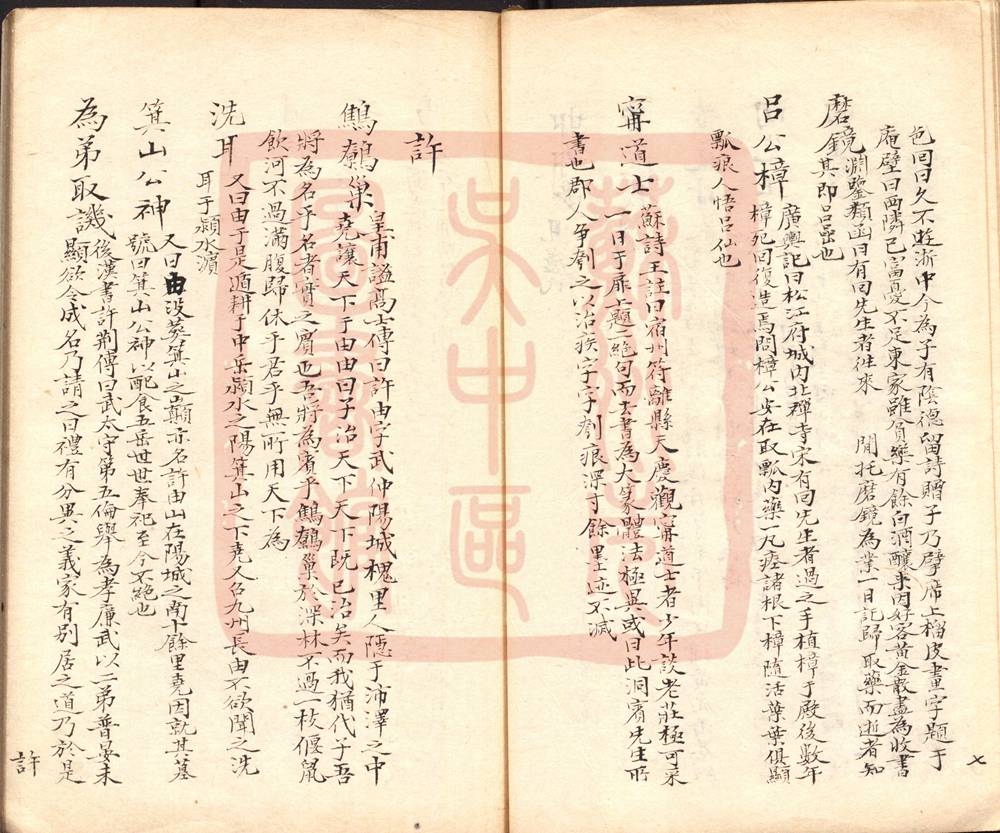 色回曰久不遊浙中今為子有陰德留詩贈子乃擘席上榴皮畫字題于
庵壁曰西隣已富憂不足東家雖貧樂有餘白酒釀來因好客黃金散盡為收書
磨鏡 淵鑒類函曰有回先生者往來 間托磨鏡為業一日記歸取藥而逝者知
其即呂嵒也
呂公樟 廣輿記曰松江府城內北禪寺宋有回先生者過之手植樟于殿後數年
樟死回復造焉問樟公安在取瓢內藥一凡瘞諸根下樟隨活葉葉俱顯
瓢痕人悟呂仙也
甯道士 蘇詩王註曰宿州符離縣天慶觀甯道士者少年談老莊極可采
一日于扉上題二絕句而去書為大篆體法極異或曰此洞賓先生所
書也郡人爭刳之以治疾字字刳痕深寸餘墨迹不滅
七
許
鷦鷯巢 皇甫謐高士傳曰許由字武仲陽城槐里人隱于沛澤之中
堯讓天下于由由曰子治天下天下既已治矣而我猶代子吾
將為名乎名者實之賓也吾將為賓乎鷦鷯巢於深林不過一枝偃鼠
飲河不過滿腹歸休乎君乎無所用天下為
洗耳 又曰由于是遁耕于中岳潁水之陽箕山之下堯又召九州長由不欲聞之洗
耳于潁水濱
箕山公神 又曰由沒葬箕山之巔亦名許由山在陽城之南十餘里堯因就其墓
號曰箕山公神以配食五岳世世奉祀至今不絕也
為弟取譏 後漢書許荊傳曰武太守第五倫舉為孝廉武以二弟普晏未
顯欲令成名乃請之曰禮有分異之義家有別居之道乃於是
許